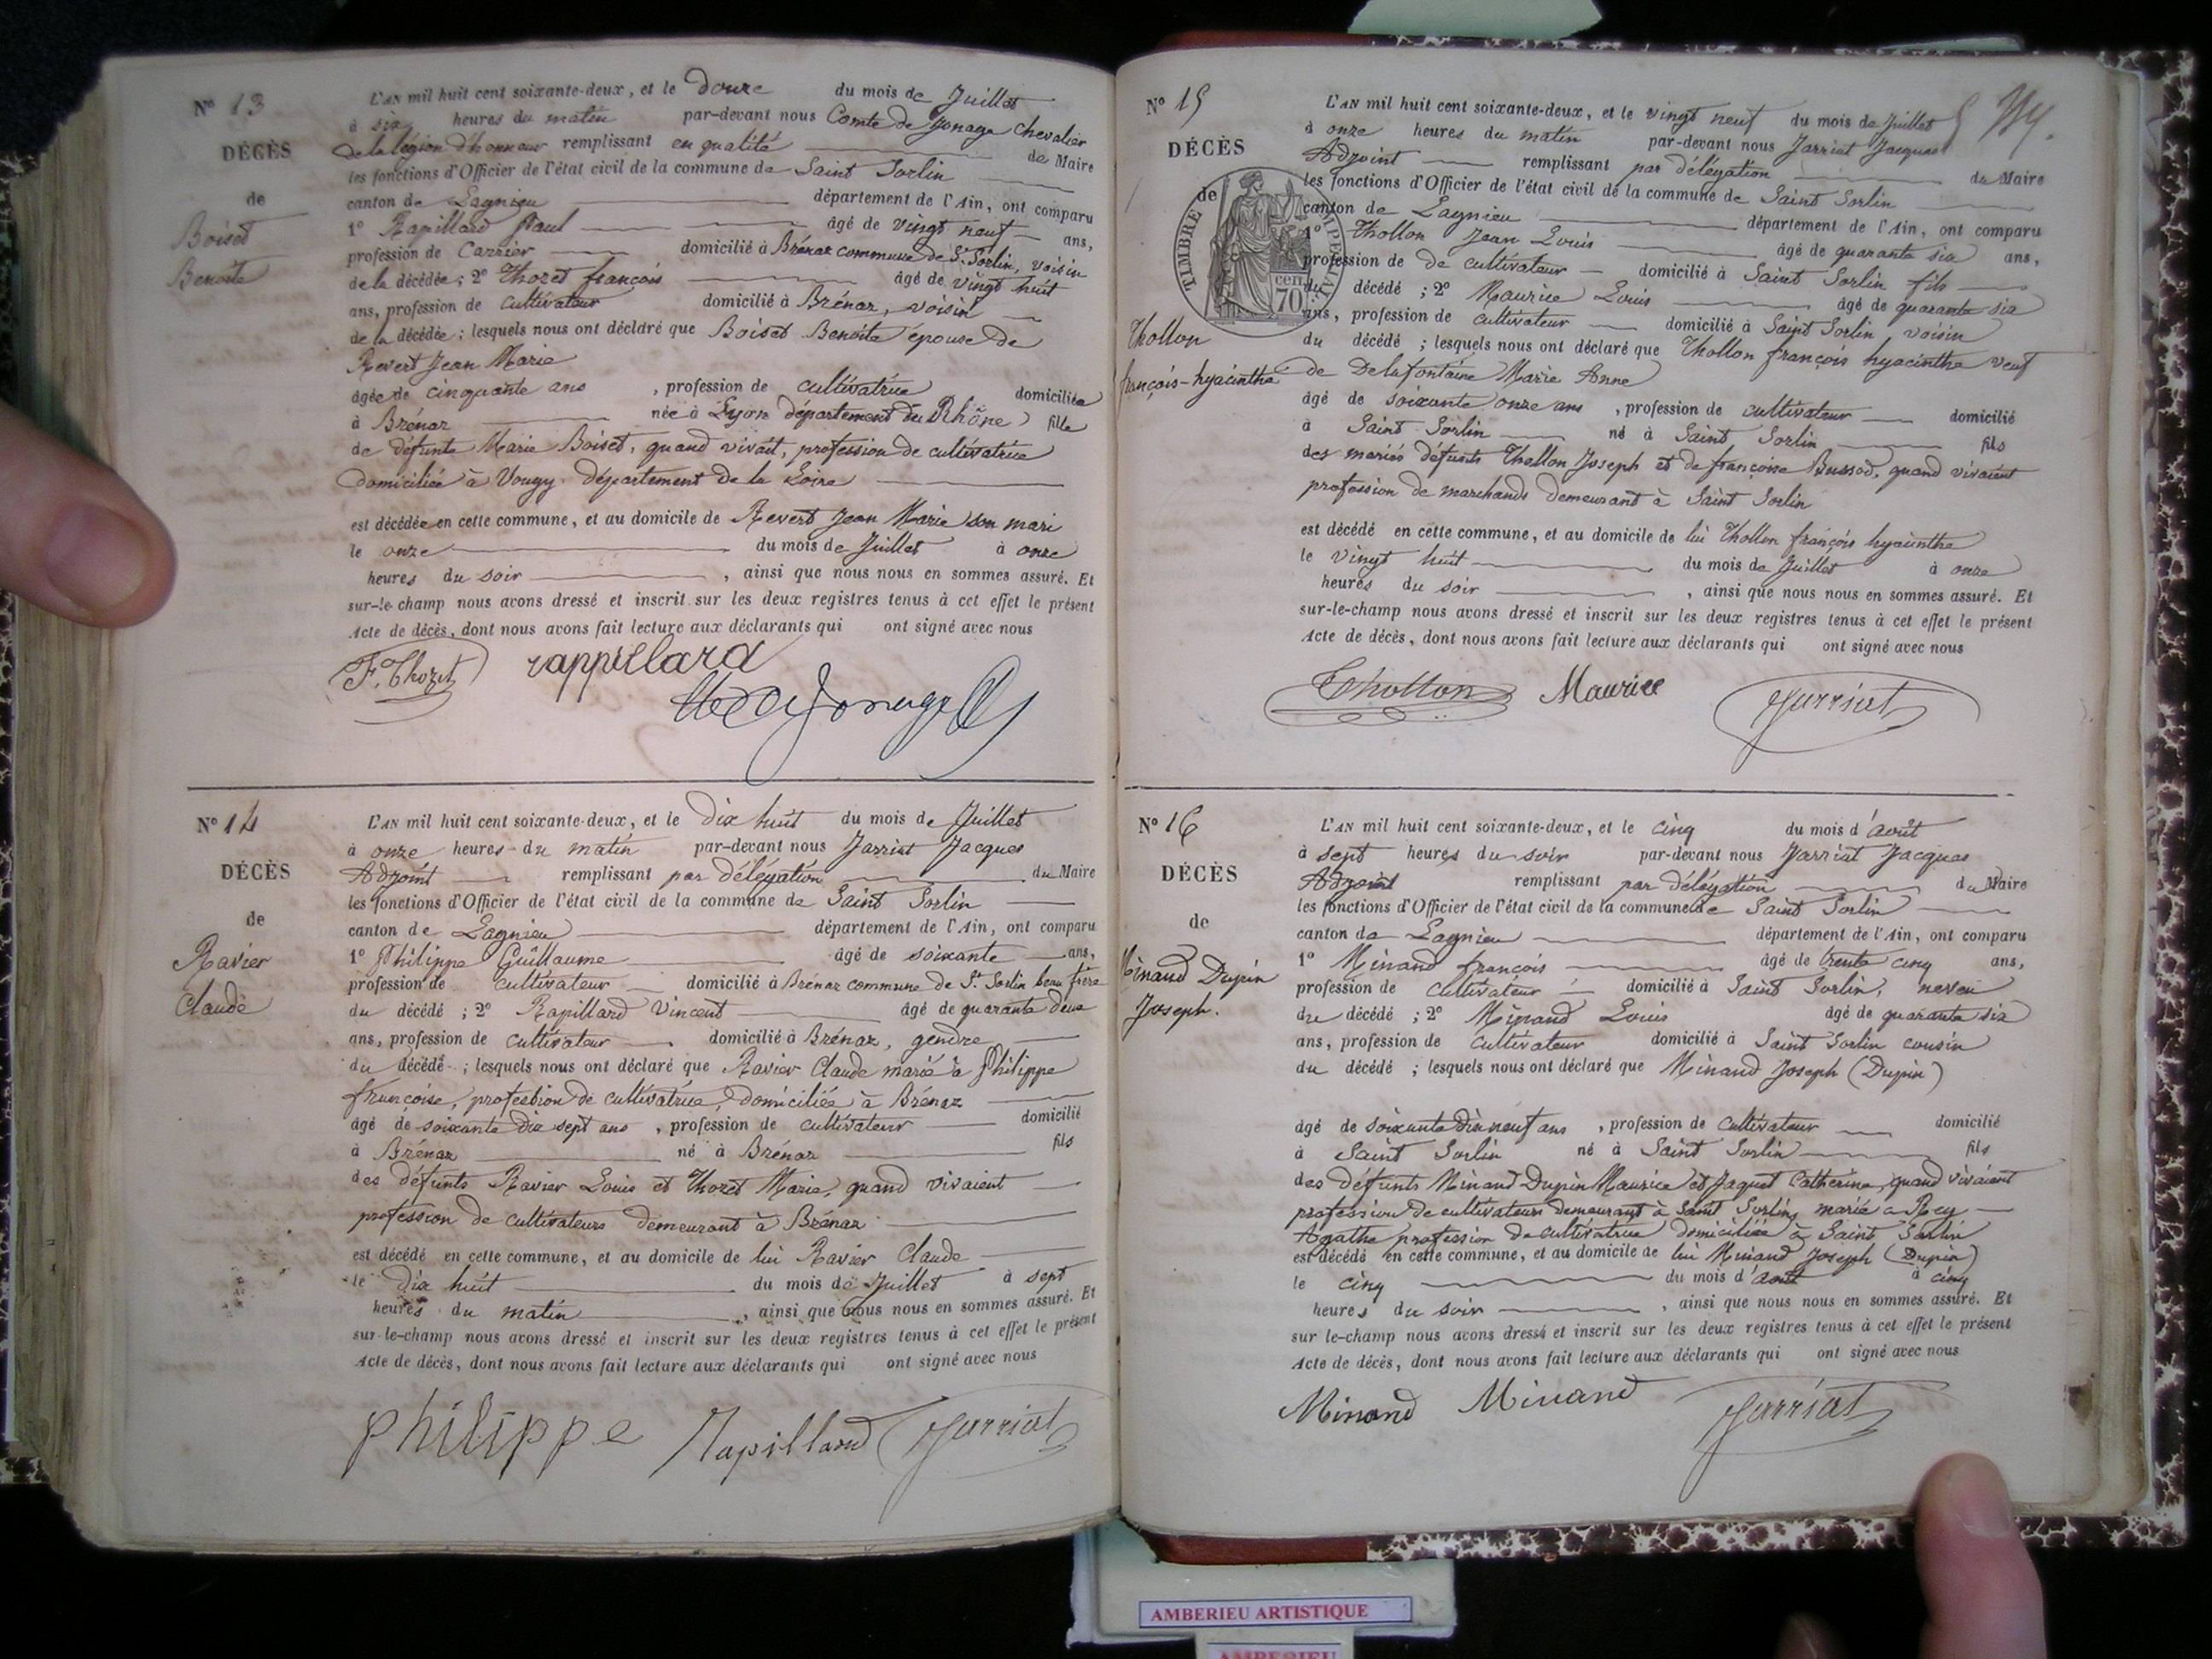 N° 13
DÉCÈS
de
Boiset
Benoite
L'AN mil huit cent soixante-deux, et le douze du mois de Juillet
à six heures du matin par-devant nous Comte de Jonage Chevalier
de la légion d'honneur remplissant en qualité de Maire
les fonctions d'Officier de l'état civil de la commune de Saint Sorlin
canton de Lagnieu département de l'Ain, ont comparu
1° Rapillard Paul âgé de vingt neuf ans,
profession de Carrier domicilié à Brénaz commune de St. Sorlin, voisin
de la décédée ; 2° Thozet françois âgé de vingt huit
ans, profession de cultivateur domicilié à Brénaz, voisin
de la décédée ; lesquels nous ont déclaré que Boiset Benoite épouse de
Revert Jean Marie
âgée de cinquante ans , profession de cultivatrice domiciliée
à Brénaz née à Lyon département du Rhône fille
de défunte Marie Boiset, quand vivait, profession de cultivatrice
domiciliée à Vougy département de la Loire
est décédée en cette commune, et au domicile de Revert Jean Marie son mari
le onze du mois de Juillet à onze
heures du soir , ainsi que nous nous en sommes assuré. Et
sur-le-champ nous avons dressé et inscrit sur les deux registres tenus à cet effet le présent
Acte de décès, dont nous avons fait lecture aux déclarants qui ont signé avec nous
F. Thozet rappillard
N° 14
DÉCÈS
de
Ravier
Claude
L'AN mil huit cent soixante-deux, et le dix huit du mois de Juillet
à onze heures du matin par-devant nous Jarriat Jacques
Adjoint remplissant par délégation du Maire
les fonctions d'Officier de l'état civil de la commune de Saint Sorlin
canton de Lagnieu département de l'Ain, ont comparu
1° Philippe Guillaume âgé de soixante ans,
profession de cultivateur domicilié à Brénaz commune de St. Sorlin beau frère
du décédé ; 2° Rapillard Vincent âgé de quarante deux
ans, profession de cultivateur domicilié à Brénaz, gendre
du décédé ; lesquels nous ont déclaré que Ravier Claude marié à Philippe
françoise, profession de cultivatrice, domiciliée à Brénaz
âgé de soixante dix sept ans , profession de cultivateur domicilié
à Brénaz né à Brénaz fils
des défunts Ravier Louis et Thozet Marie, quand vivaient
profession de cultivateurs demeurant à Brénaz
est décédé en cette commune, et au domicile de lui Ravier Claude
le dix huit du mois de Juillet à sept
heures du matin , ainsi que nous nous en sommes assuré. Et
sur-le-champ nous avons dressé et inscrit sur les deux registres tenus à cet effet le présent
Acte de décès, dont nous avons fait lecture aux déclarants qui ont signé avec nous
philippe Rapillard Jarriat
N° 15
DÉCÈS
de
TIMBRE IMPERIAL
cen
70
Thollon
françois-hyacinthe
L'AN mil huit cent soixante-deux, et le vingt neuf du mois de Juillet
à onze heures du matin par-devant nous Jarriat Jacques
Adjoint remplissant par délégation du Maire
les fonctions d'Officier de l'état civil de la commune de Saint Sorlin
canton de Lagnieu département de l'Ain, ont comparu
1° Thollon Jean Louis âgé de quarante six ans,
profession de de cultivateur domicilié à Saint Sorlin fils
du décédé ; 2° Maurice Louis âgé de quarante six
ans, profession de cultivateur domicilié à Saint Sorlin voisin
du décédé ; lesquels nous ont déclaré que Thollon françois hyacinthe veuf
de Delafontaine Marie Anne
âgé de soixante onze ans , profession de cultivateur domicilié
à Saint Sorlin né à Saint Sorlin fils
des mariés défunts Thollon Joseph et de françoise Bussod, quand vivaient
profession de marchands demeurant à Saint Sorlin
est décédé en cette commune, et au domicile de lui Thollon françois hyacinthe
le vingt huit du mois de Juillet à onze
heures du soir , ainsi que nous nous en sommes assuré. Et
sur-le-champ nous avons dressé et inscrit sur les deux registres tenus à cet effet le présent
Acte de décès, dont nous avons fait lecture aux déclarants qui ont signé avec nous
Thollon Maurice Jarriat
N° 16
DÉCÈS
de
Minand Dupin
Joseph.
L'AN mil huit cent soixante-deux, et le cinq du mois d'août
à sept heures du soir par-devant nous Jarriat Jacques
Adjoint remplissant par délégation du Maire
les fonctions d'Officier de l'état civil de la commune de Saint Sorlin
canton de Lagnieu département de l'Ain, ont comparu
1° Minand françois âgé de trente cinq ans,
profession de cultivateur domicilié à Saint Sorlin, neveu
du décédé ; 2° Minand Louis âgé de quarante six
ans, profession de cultivateur domicilié à Saint Sorlin cousin
du décédé ; lesquels nous ont déclaré que Minand Joseph (Dupin)
âgé de soixante dix neuf ans , profession de cultivateur domicilié
à Saint Sorlin né à Saint Sorlin fils
des défunts Minand Dupin Maurice et Jaquet Catherine, quand vivaient
profession de cultivateurs demeurant à Saint Sorlin, marié a Rey
Agathe profession de cultivatrice domiciliée à Saint Sorlin
est décédé en cette commune, et au domicile de lui Minand Joseph (Dupin)
le cinq du mois d'août à cinq
heures du soir , ainsi que nous nous en sommes assuré. Et
sur le-champ nous avons dressé et inscrit sur les deux registres tenus à cet effet le présent
Acte de décès, dont nous avons fait lecture aux déclarants qui ont signé avec nous
Minand Minand Jarriat
AMBERIEU ARTISTIQUE
AMBERIEU